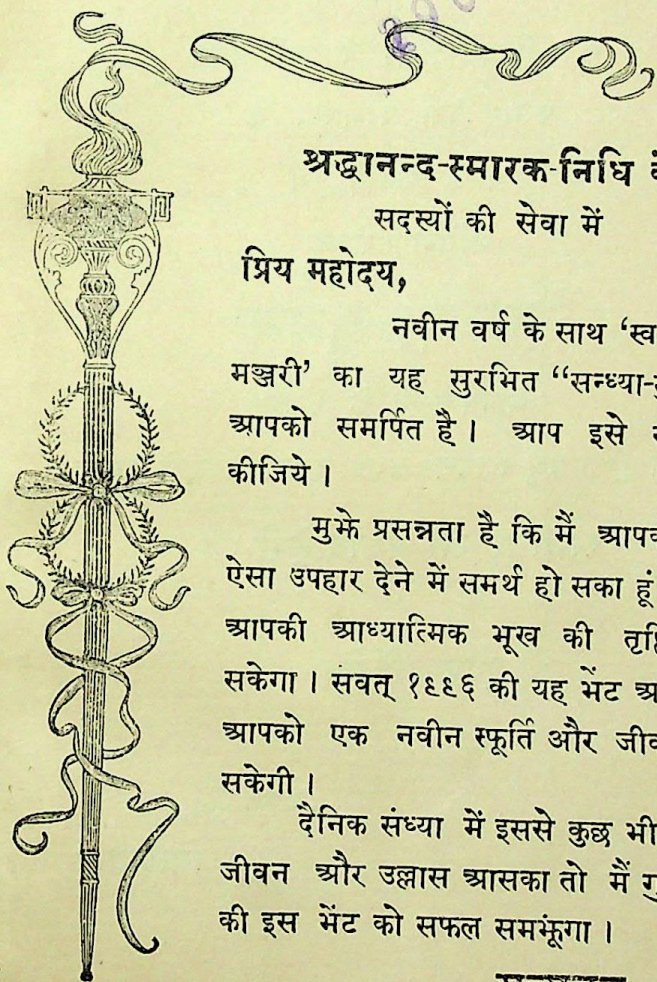 श्रद्धानन्द-स्मारक-निधि के
सदस्यों की सेवा में
प्रिय महोदय,
नवीन वर्ष के साथ ‘स्व
मञ्जरी’ का यह सुरभित “सन्ध्या-
आपको समर्पित है। आप इसे
कीजिये।
मुझे प्रसन्नता है कि मैं आपक
ऐसा उपहार देने में समर्थ हो सका हूं
आपकी आध्यात्मिक भूख की तृप्ति
सकेगा। सवत् १९९६ की यह भेंट अ
आपको एक नवीन स्फूर्ति और जीव
सकेगी।
दैनिक संध्या में इससे कुछ भी
जीवन और उल्लास आसका तो मैं गु
की इस भेंट को सफल समझूंगा।